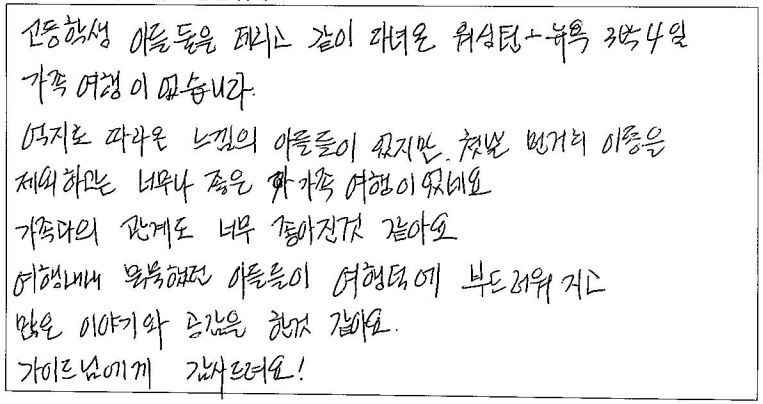 고등학생 아들 둘을 데리고 같이 다녀온 워싱턴+뉴욕 3박4일
가족 여행이 었습니다.
억지로 따라온 느낌의 아들들이 었지만, 첫날 먼거리 이동을
제외하고는 너무나 좋은 가족 여행이 었네요
가족과의 관계도 너무 좋아진것 같아요
여행내내 묵묵했던 아들들이 여행덕에 부드러워 지고
많은 이야기와 공감을 한것 같아요.
가이드님에게 감사드려요!